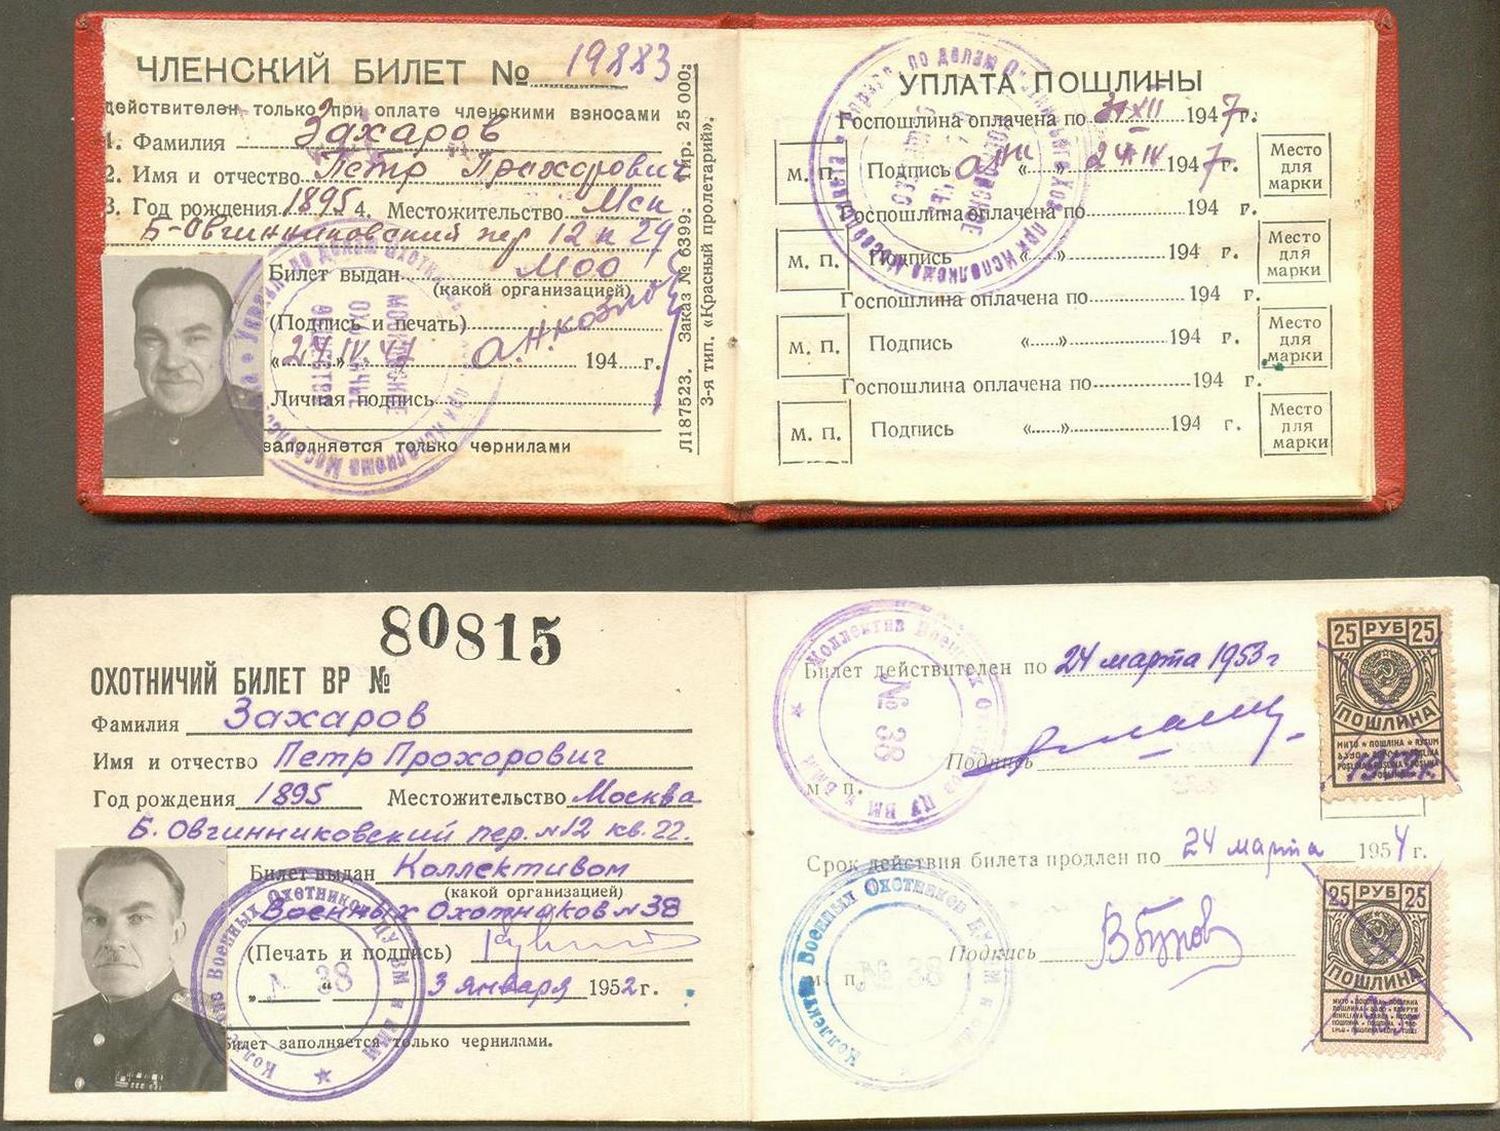 ЧЛЕНСКИЙ БИЛЕТ № 19883
действителен только при оплате членскими взносами
1. Фамилия Захаров
2. Имя и отчество Петр Прохорович
3. Год рождения 1895 4. Местожительство Мск
Б-Овчинниковский пер 12 к 29
Билет выдан МОО
(какой организацией)
(Подпись и печать)
«24» IV. 47 194 г.
Личная подпись
заполняется только чернилами
Л187523. Заказ № 6399; Тир. 25 000;
3-я тип. «Красный пролетарий».
УПЛАТА ПОШЛИНЫ
Госпошлина оплачена по 31 XII 1947 г.
М. П. Подпись « » 24 IV 1947 г. Место для марки
Госпошлина оплачена по 194 г.
М. П. Подпись « » 194 г. Место для марки
Госпошлина оплачена по 194 г.
М. П. Подпись « » 194 г. Место для марки
Госпошлина оплачена по 194 г.
М. П. Подпись « » 194 г. Место для марки
80815
ОХОТНИЧИЙ БИЛЕТ ВР №
Фамилия Захаров
Имя и отчество Петр Прохорович
Год рождения 1895 Местожительство Москва
Б. Овчинниковский пер. №12 кв. 22.
Билет выдан Коллективом
(какой организацией)
Военных Охотников №38
(Печать и подпись)
№ 38
„ “ 3 января 1952 г.
Билет заполняется только чернилами.
Коллектив Военных Охотников ЦУ ВМ и ВММ
Билет действителен по 24 марта 1953 г
№ 38
Подпись
м. п.
25 РУБ 25
ПОШЛИНА
Срок действия билета продлен по 24 марта 1954 г.
Коллектив Военных Охотников
Подпись В Буров
м. п. № 38
25 РУБ 25
ПОШЛИНА